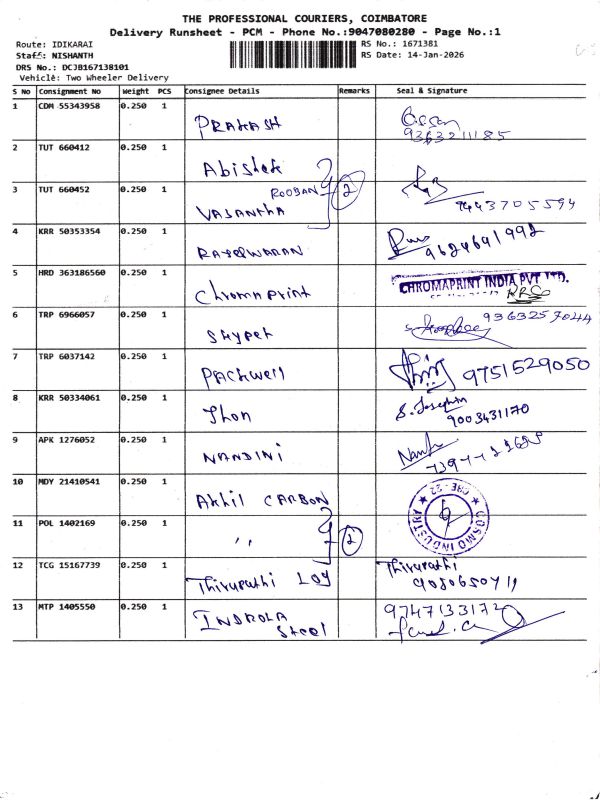 THE PROFESSIONAL COURIERS, COIMBATORE
Delivery Runsheet - PCM - Phone No.:9047080280 - Page No.:1
Route: IDIKARAI
RS No.: 1671381
Staff: NISHANTH
RS Date: 14-Jan-2026
DRS No.: DCJB167138101
Vehicle: Two Wheeler Delivery
S No Consignment No Weight PCS Consignee Details Remarks Seal & Signature
1 CDM 55343958 0.250 1 PRAKASH
9363211185
2 TUT 660412 0.250 1 Abishek
ROOBAN 2
3 TUT 660452 0.250 1 VASANTHA 9443705594
4 KRR 50353354 0.250 1 RAJESWARAN 9624641992
5 HRD 363186560 0.250 1 Chromaprint CHROMAPRINT INDIA PVT LTD.
6 TRP 6966057 0.250 1 Skyper 9363257044
7 TRP 6037142 0.250 1 Packwell 9751529050
8 KRR 50334061 0.250 1 Jhon S. Josephin
9003431170
9 APK 1276052 0.250 1 NANDINI
10 MDY 21410541 0.250 1 Akhil CARBON COSMO INDUSTRY CBE-22
11 POL 1402169 0.250 1 ,, 2
12 TCG 15167739 0.250 1 Thirupathi LOY Thirupathi
9080650711
13 MTP 1405550 0.250 1 INDROLA Steel 9747133172